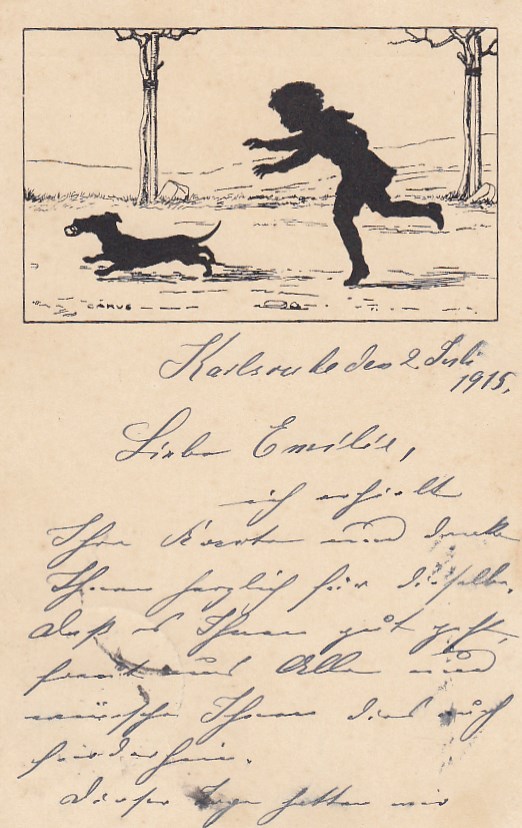 CARUS
Karlsruhe den 2 Juli
1915.
Liebe Emilie,
ich erhielt
Ihre Karte und danke
Ihnen herzlich für dieselbe.
daß es Ihnen gut geht,
freut uns Alle und
wünsche Ihnen dies auch
fernerhin.
Dieser Tage hatten wir